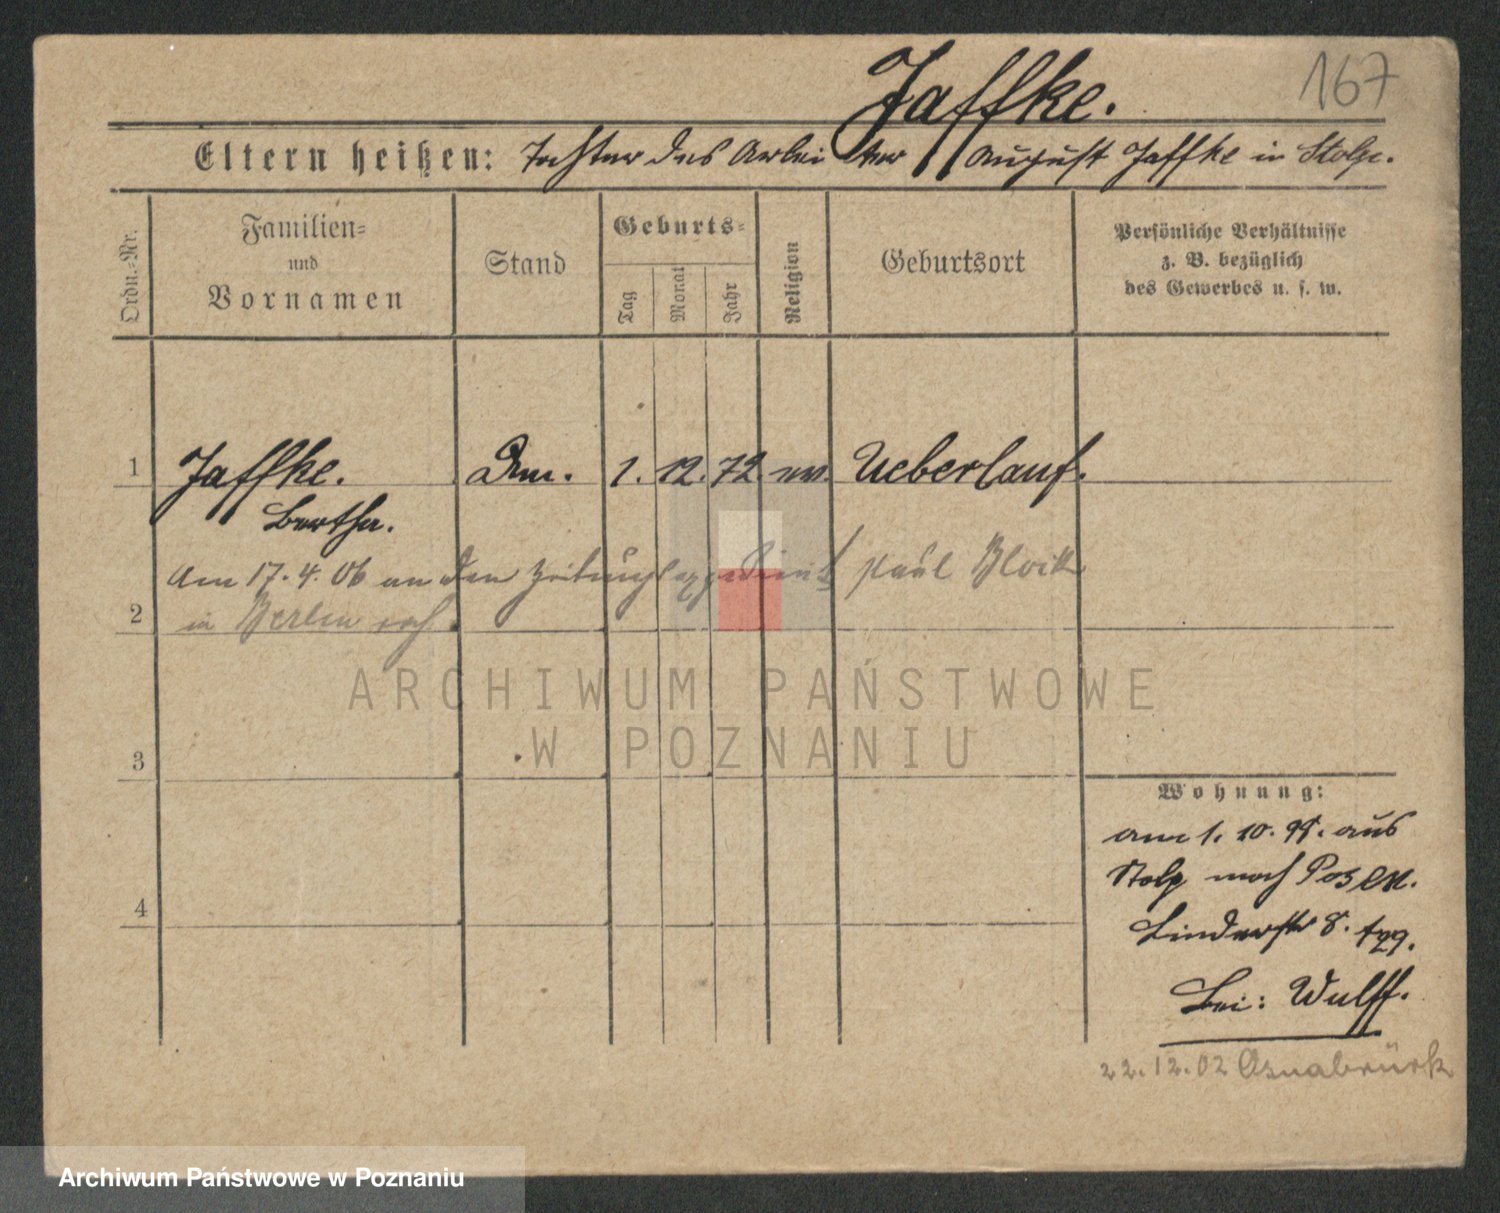 167
Jaffke.
Eltern heißen: Tochter des Arbeiter August Jaffke in Stolp.
Ordn.-Nr.
Familien-
und
Vornamen
Stand
Geburts-
Tag
Monat
Jahr
Religion
Geburtsort
Persönliche Verhältnisse
z. B. bezüglich
des Gewerbes u. s. w.
1 Jaffke. 1. 12. 72. ev. Ueberlauf.
Bertha.
Am 17.4.06 an den Zeitungsexpedient Paul
2 in Berlin
3
4
Wohnung:
am 1. 10. 99. aus
Stolp nach Posen.
Lindenstr 8.
Bei: Wulff.
22.12.02 Osnabrück
ARCHIWUM PAŃSTWOWE
W POZNANIU
Archiwum Państwowe w Poznaniu